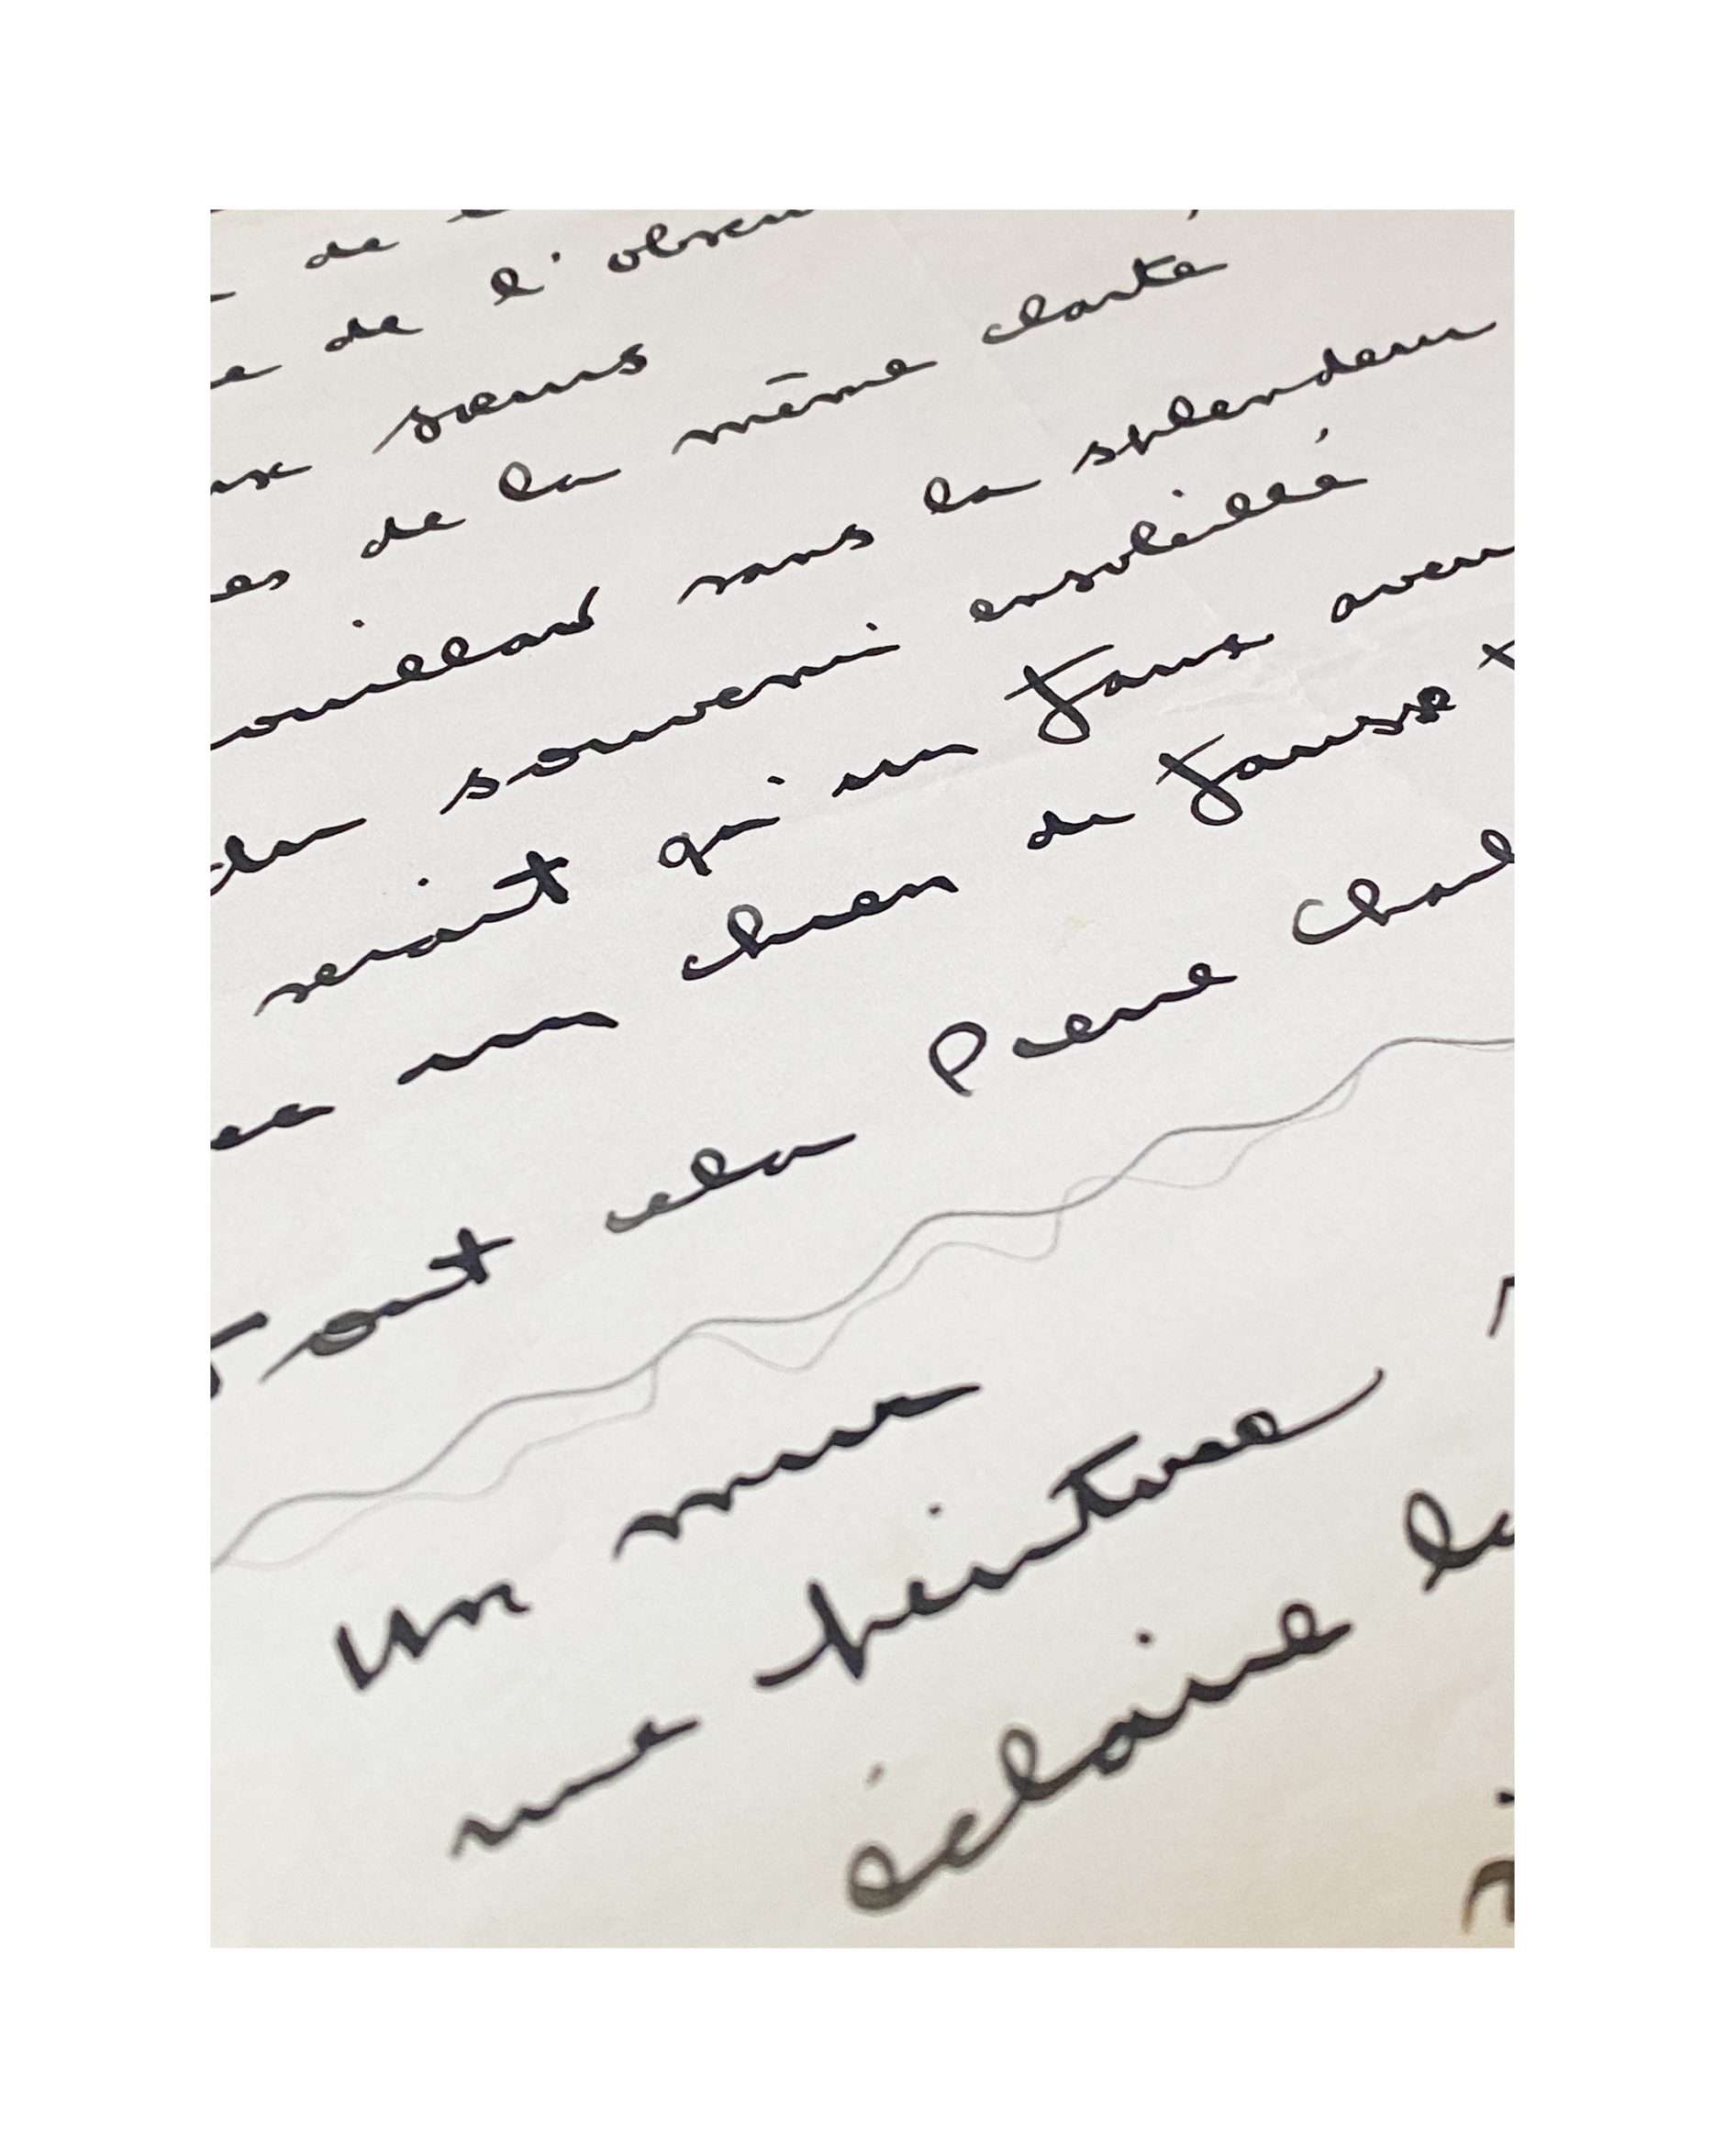 de
de l'obscu
ux sœurs
es de la même clarté
ouillard sans la splendeur
du souvenir ensoleillé
serait qu'un faux aveu
ee un chien de fausse
Tout cela Pierre Cha
Un mur
une peinture
éclaire la